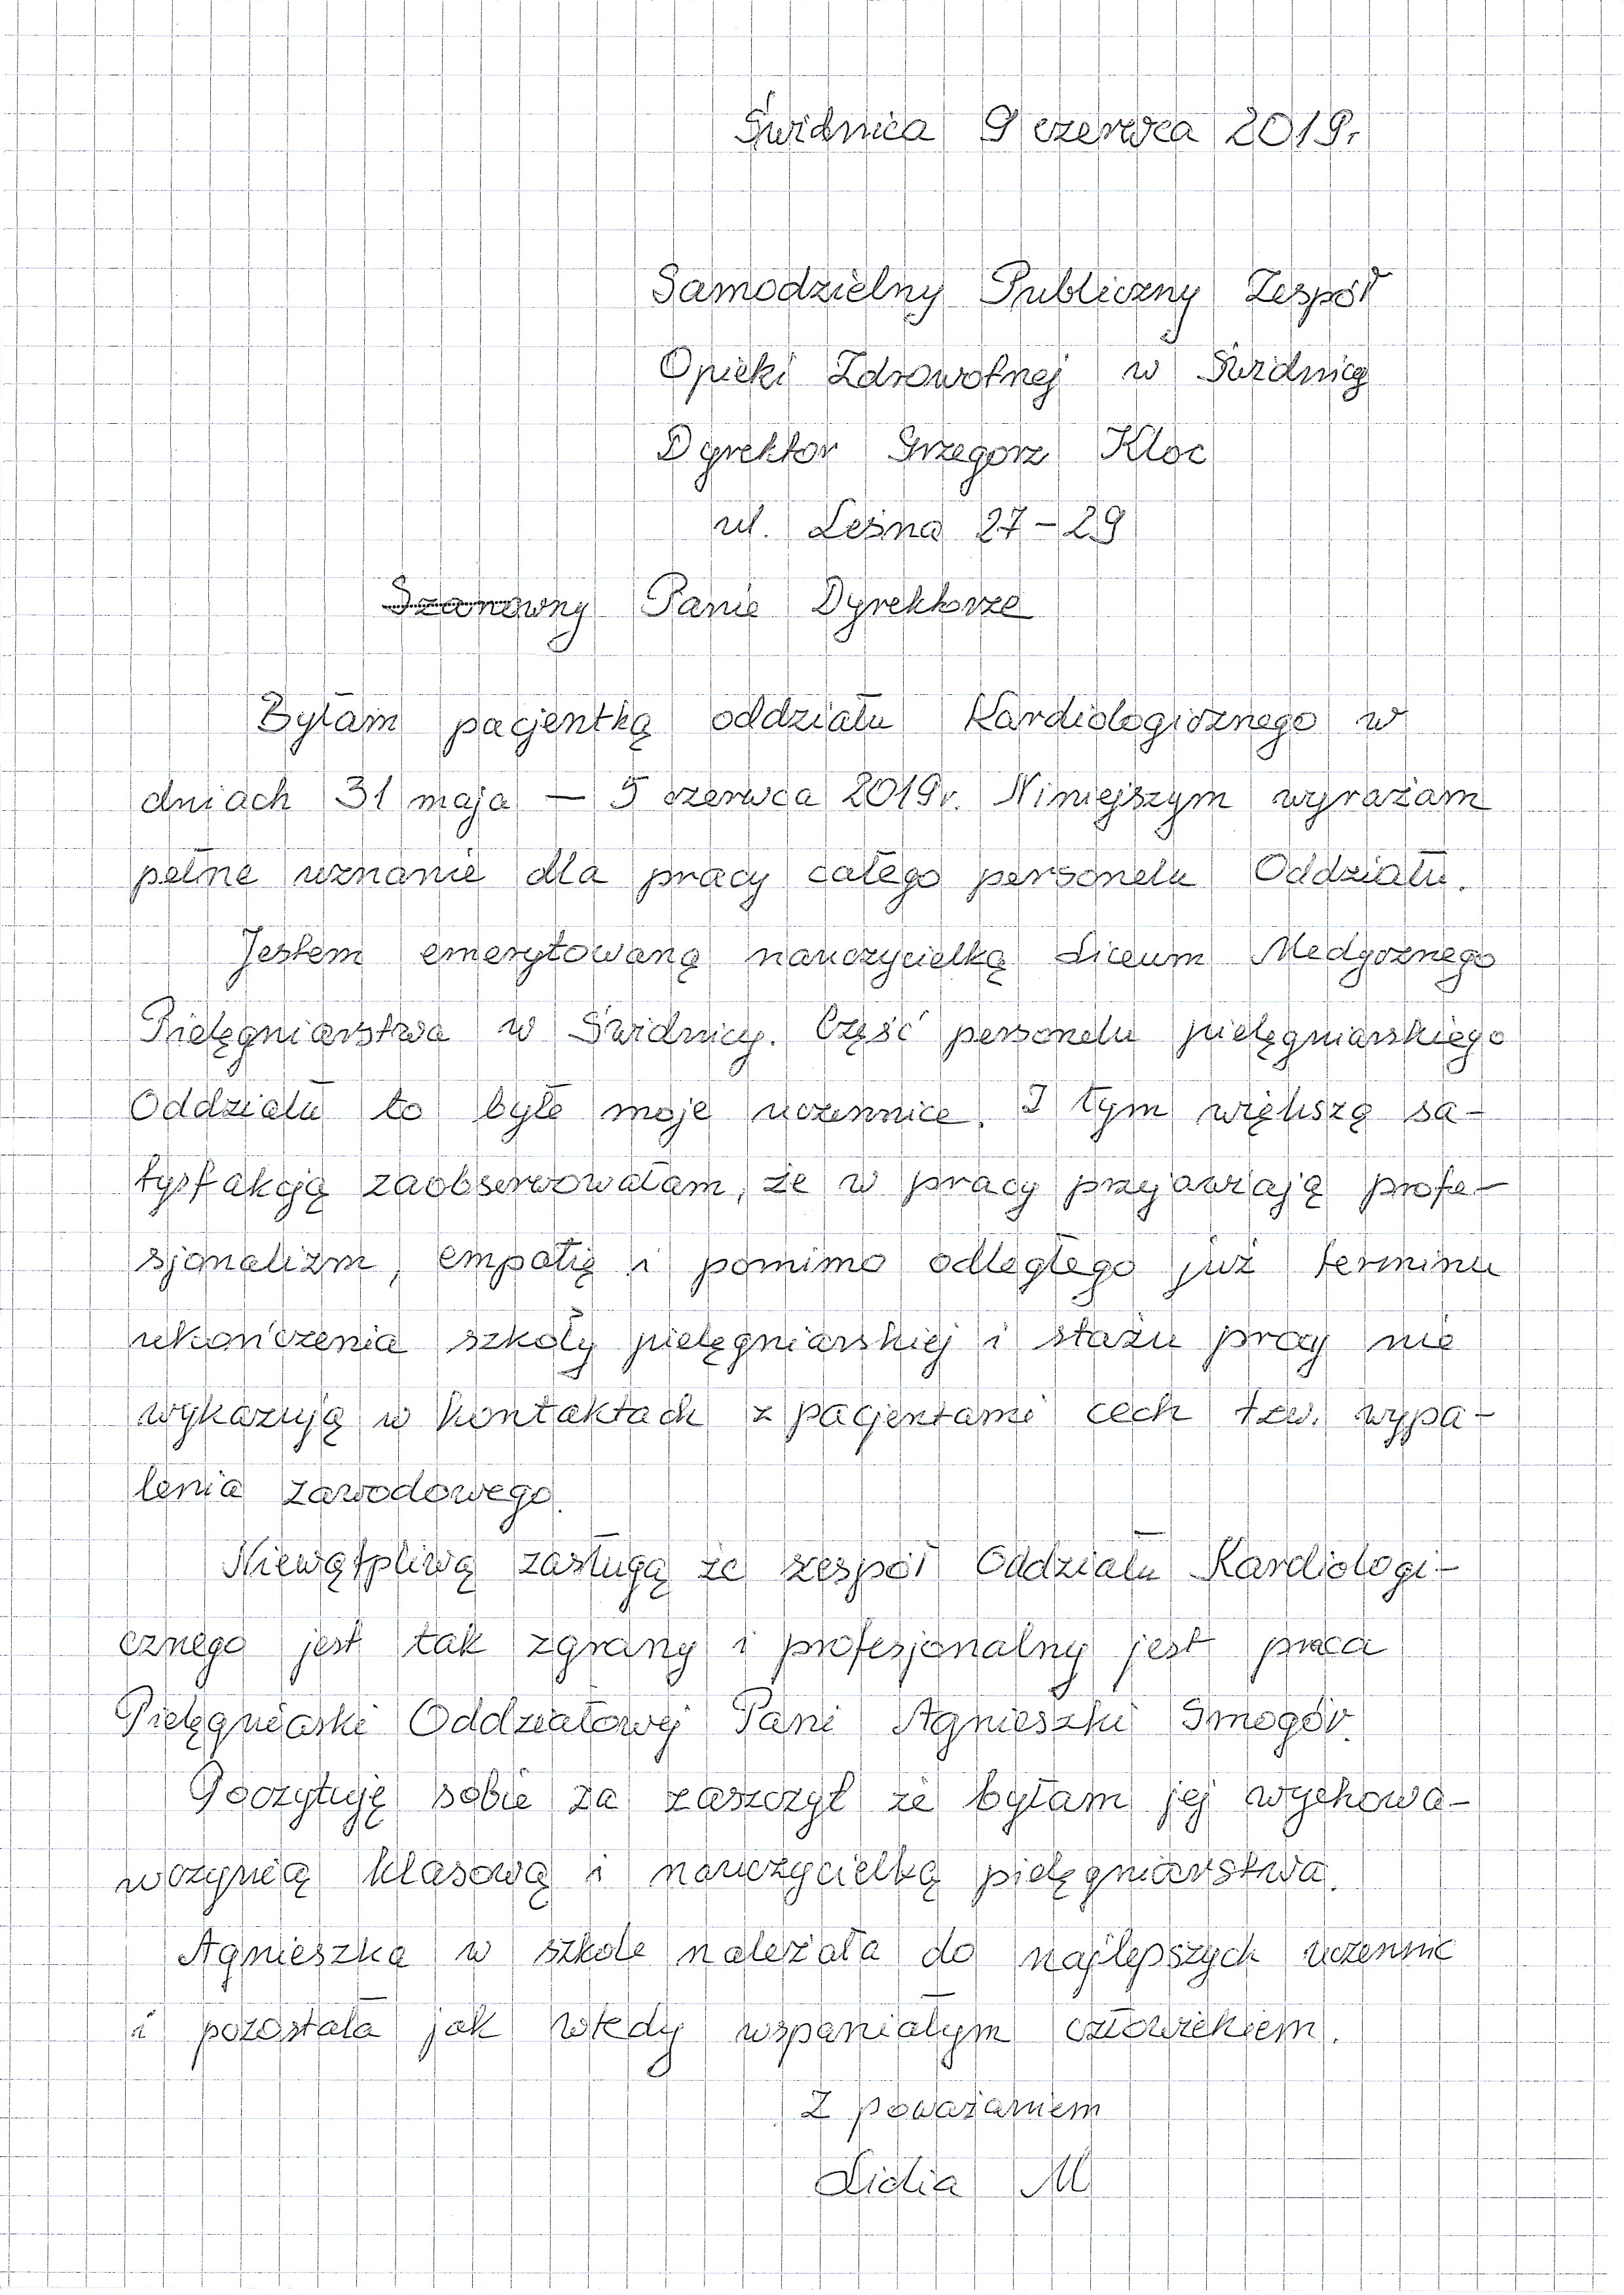 Świdnica 9 czerwca 2019r.
Samodzielny Publiczny Zespół
Opieki Zdrowotnej w Świdnicy
Dyrektor Grzegorz Kloc
ul. Leśna 27-29
Szanowny Panie Dyrektorze
Byłam pacjentką oddziału Kardiologicznego w
dniach 31 maja – 5 czerwca 2019r. Niniejszym wyrażam
pełne uznanie dla pracy całego personelu Oddziału.
Jestem emerytowaną nauczycielką Liceum Medycznego
Pielęgniarstwa w Świdnicy. Część personelu pielęgniarskiego
Oddziału to byłe moje uczennice. I tym większą sa-
tysfakcją zaobserwowałam, że w pracy przejawiają profe-
sjonalizm, empatię i pomimo odległego już terminu
ukończenia szkoły pielęgniarskiej i stażu pracy nie
wykazują w kontaktach z pacjentami cech tzw. wypa-
lenia zawodowego.
Niewątpliwą zasługą że zespół Oddziału Kardiologi-
cznego jest tak zgrany i profesjonalny jest praca
Pielęgniarki Oddziałowej Pani Agnieszki Smogór.
Poczytuję sobie za zaszczyt że byłam jej wychowa-
wczynią klasową i nauczycielką pielęgniarstwa.
Agnieszka w szkole należała do najlepszych uczennic
i pozostała jak wtedy wspaniałym człowiekiem.
Z poważaniem
Lidia M